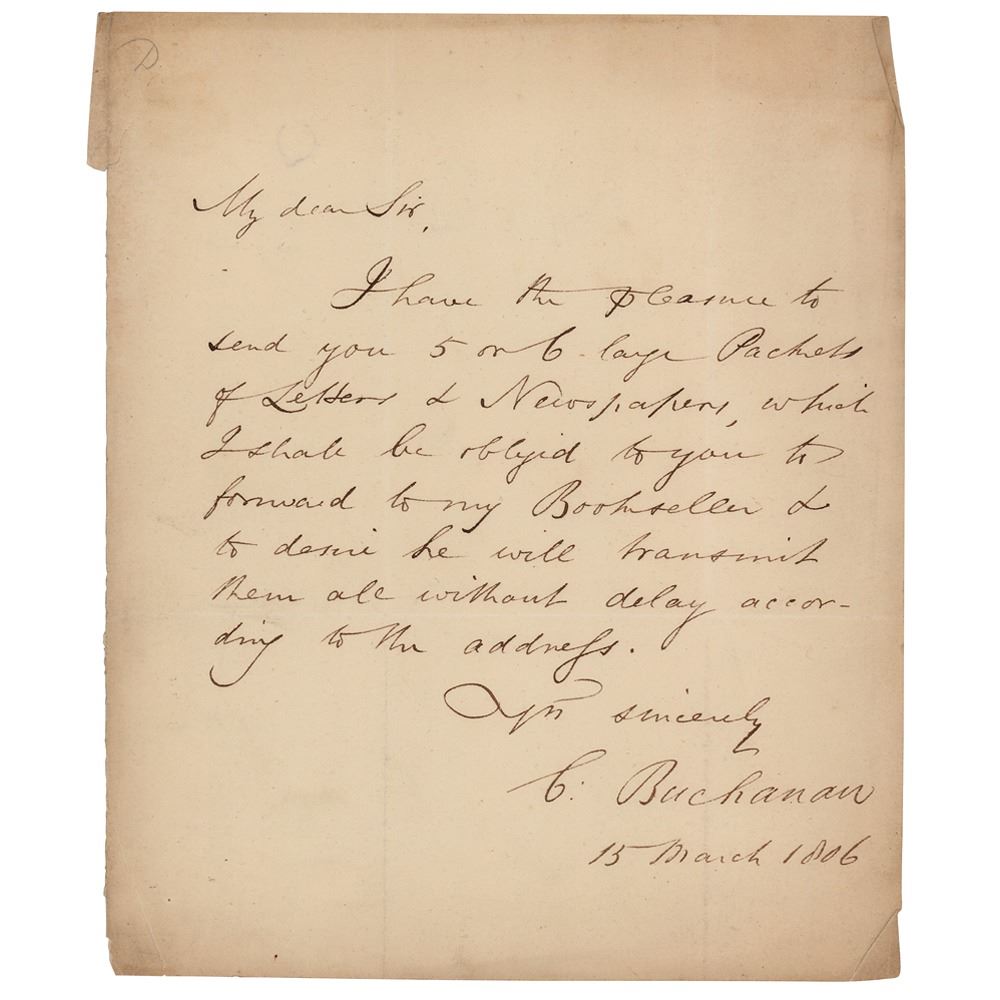 D.
My dear Sir,
I have the pleasure to
send you 5 or 6 large Packets
of Letters & Newspapers, which
I shall be obligid to you to
forward to my Bookseller &
to desire he will transmit
them all without delay accor-
ding to the address.
Yrs sincerely
C. Buchanan
15 March 1806